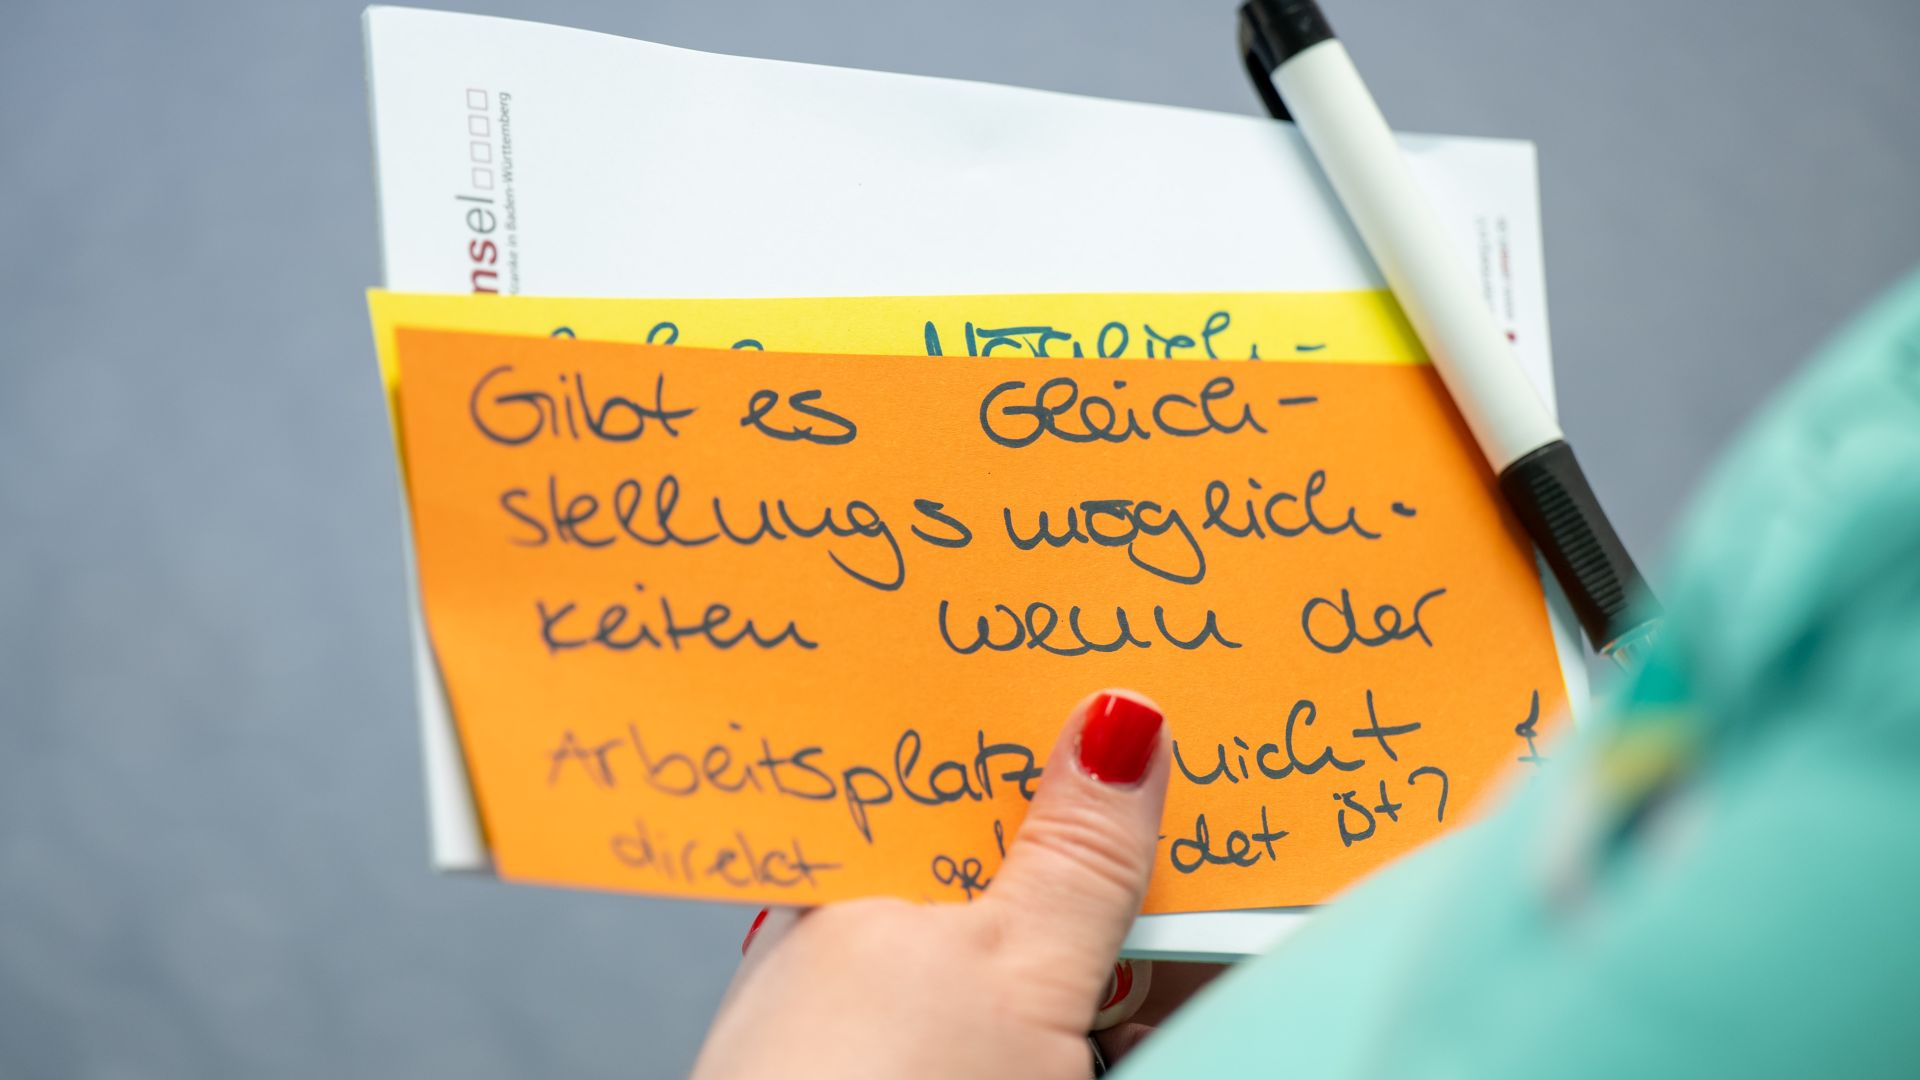 nsel
Kranke in Baden-Württemberg
Möglich-
Gibt es Gleich-
stellungsmöglich-
keiten wenn der
Arbeitsplatz nicht
direkt ge det ist?